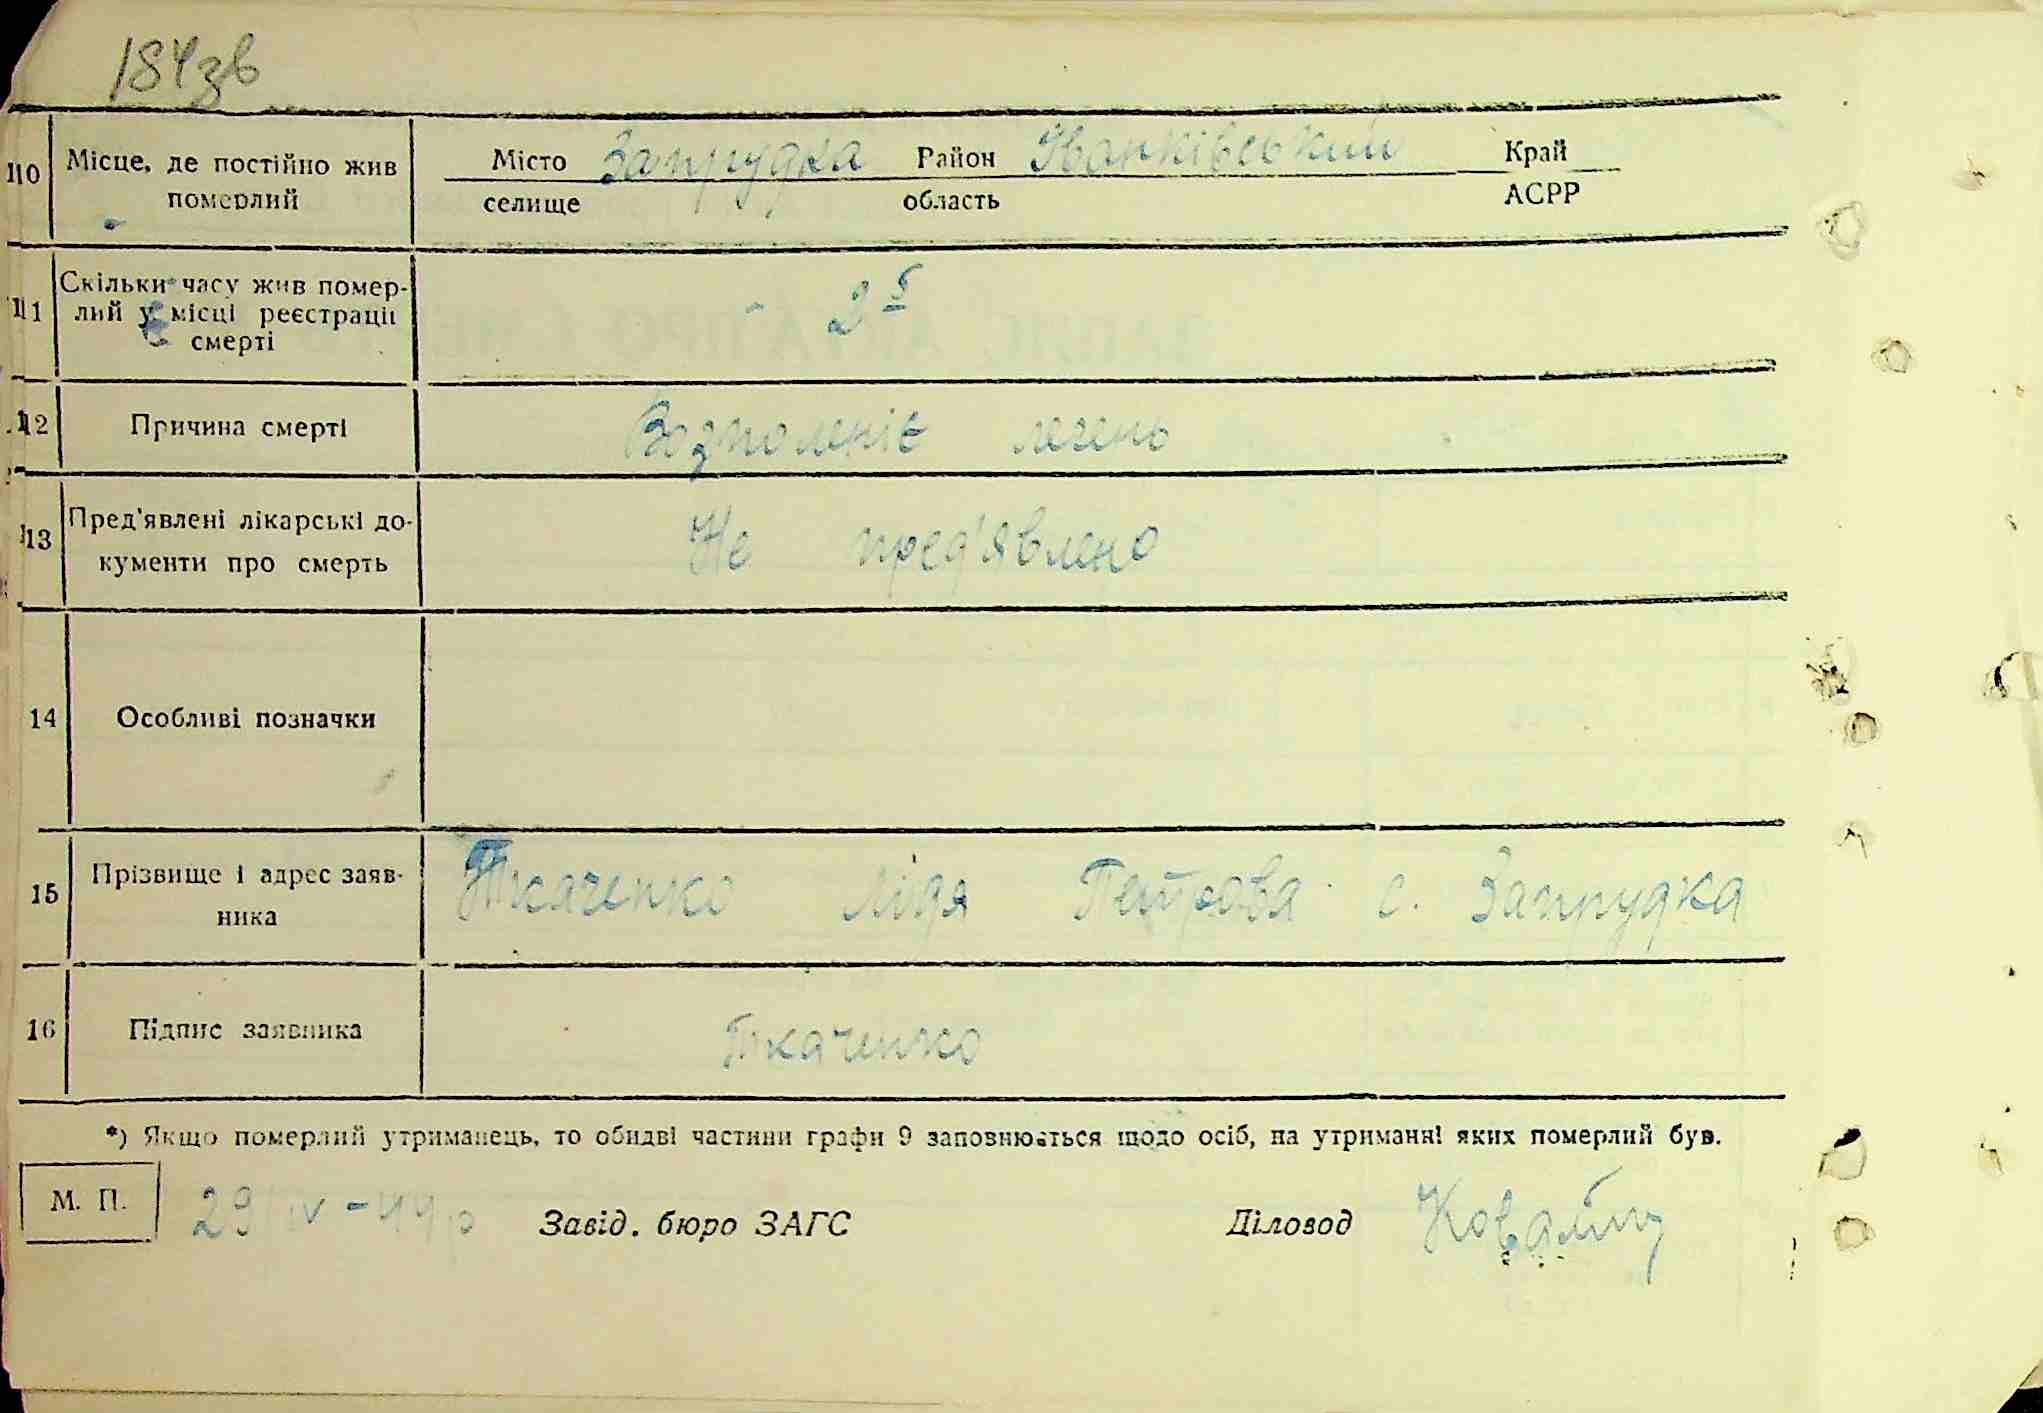 184зв
10 Місце, де постійно жив Місто Запрудка Район Іванківський Край
померлий селище область АСРР
Скільки часу жив помер-
11 лий у місці реєстрації 2 5
смерті
12 Причина смерті Возполеніє легень
Пред'явлені лікарські до-
13 Не пред'явлено
кументи про смерть
14 Особливі позначки
Прізвище і адрес заяв-
15 Ткаченко Лідя Петрова с. Запрудка
ника
16 Підпис заявника Ткаченко
*) Якщо померлий утриманець, то обидві частини графи 9 заповнюються щодо осіб, на утриманні яких померлий був.
М. П. 29/IV-44р Завід. бюро ЗАГС Діловод